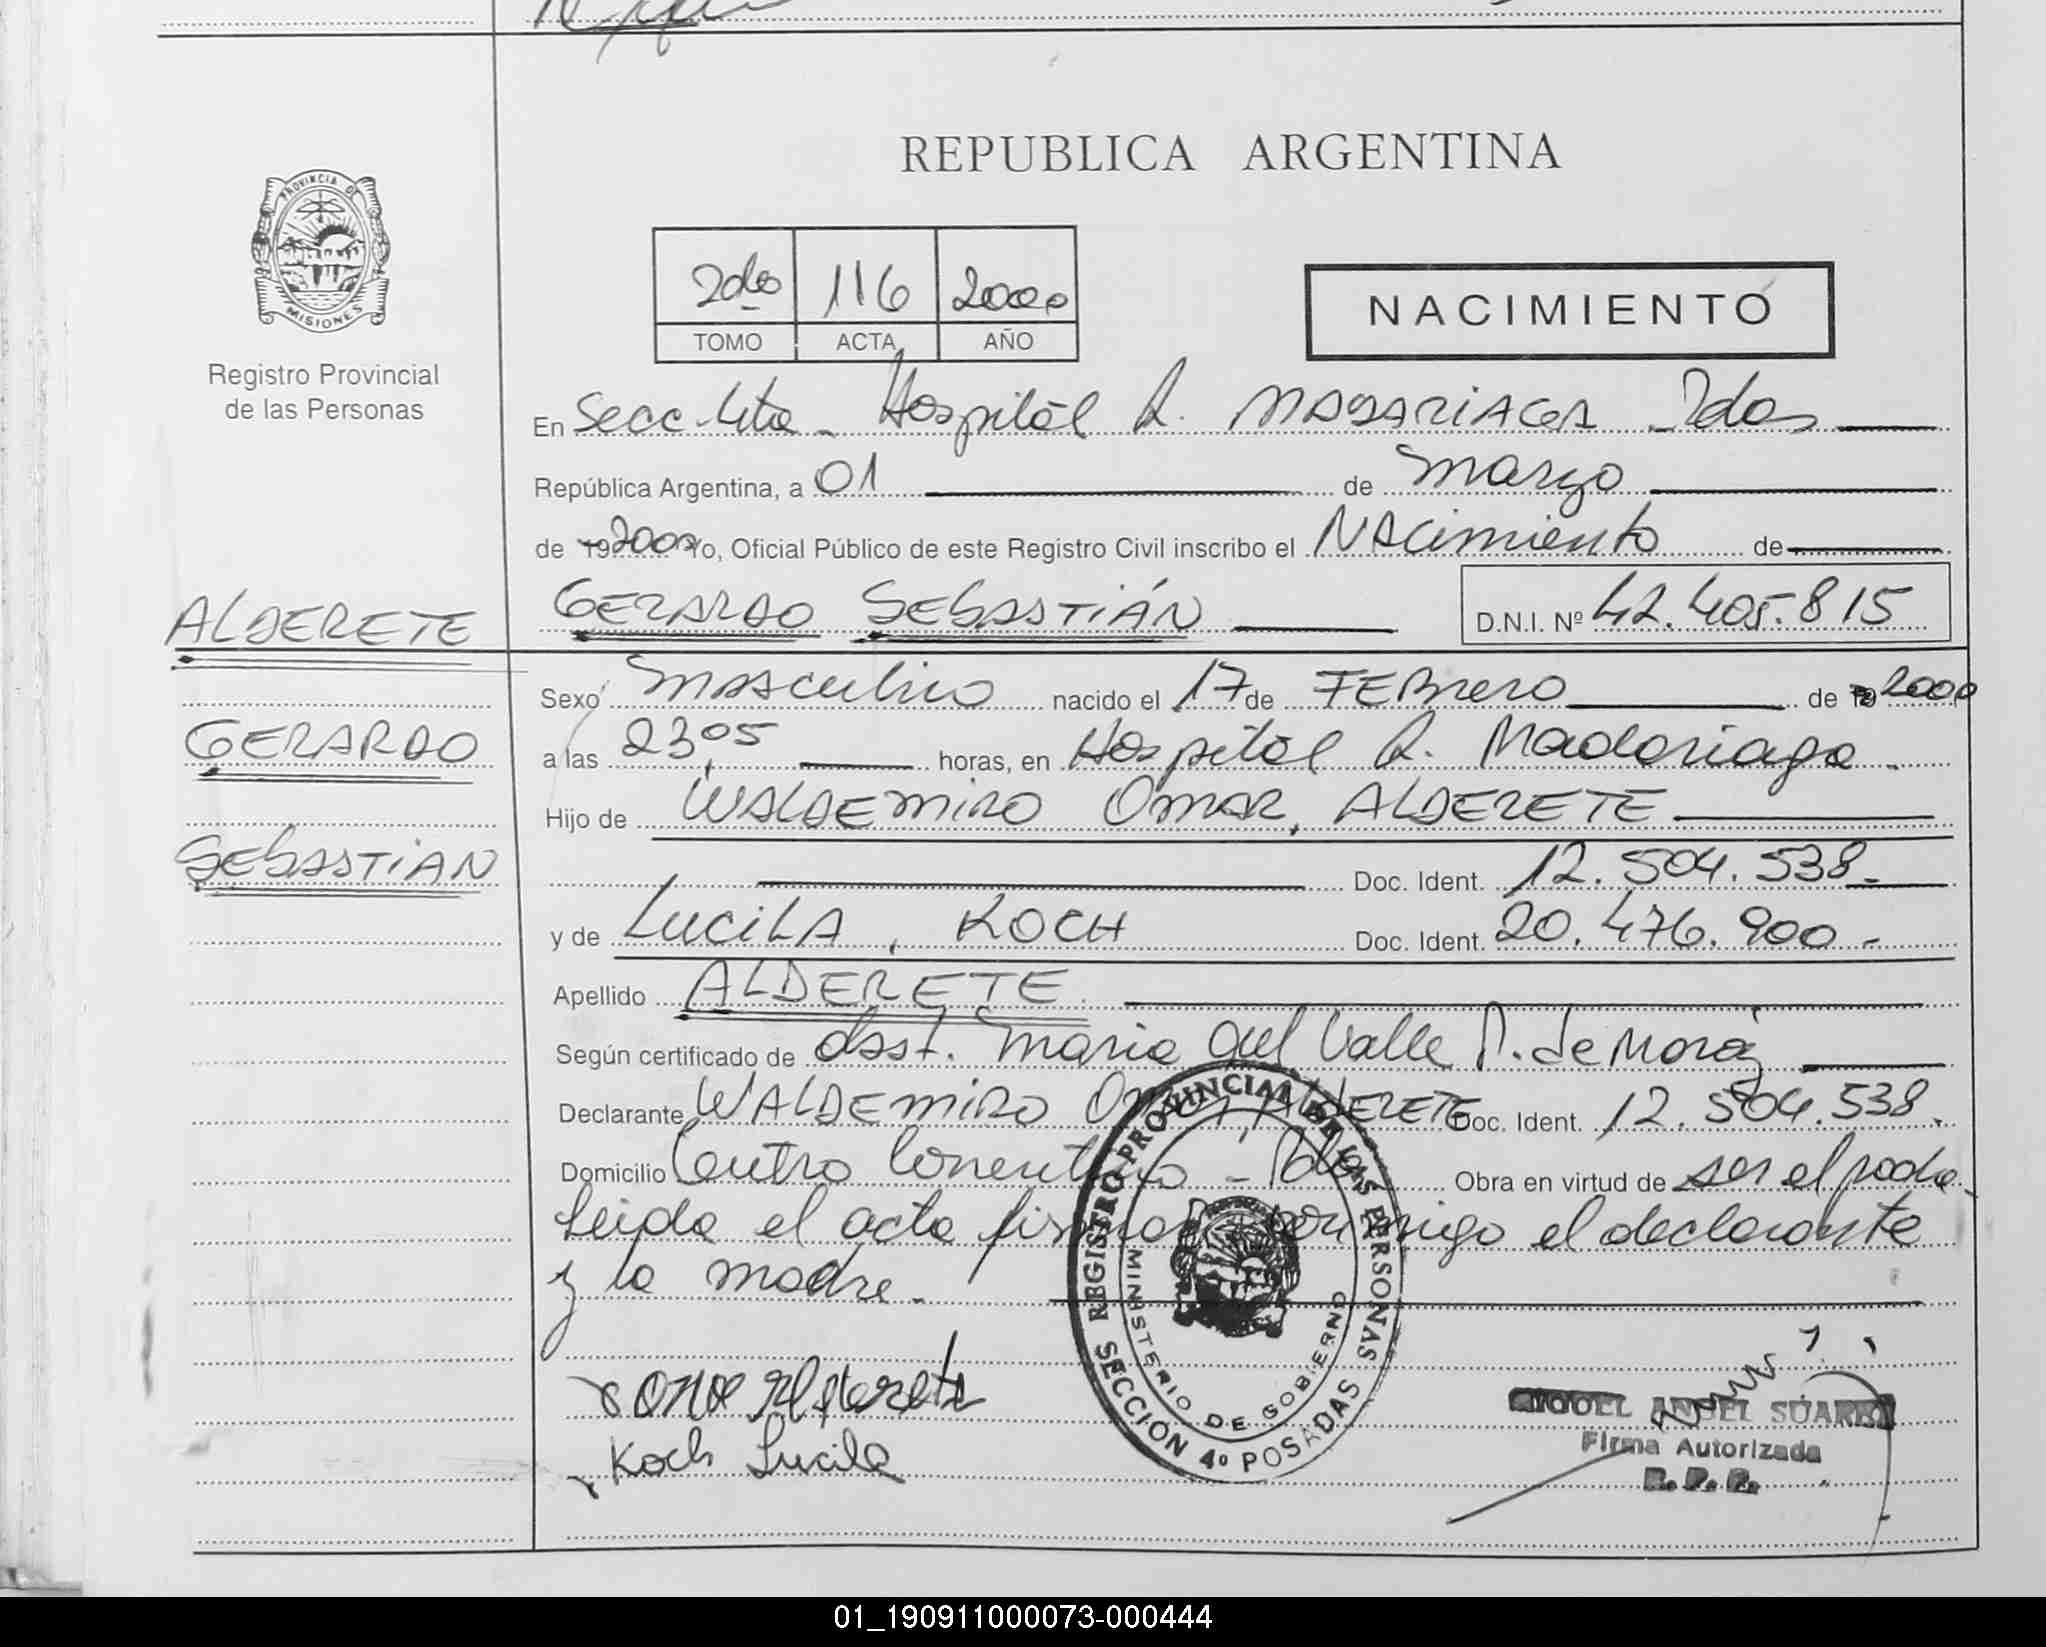 REPUBLICA ARGENTINA
PROVINCIA DE
MISIONES
Registro Provincial
de las Personas
2do 116 2000
TOMO ACTA AÑO
NACIMIENTO
En Secc. 4ta - Hospital R. MADARIAGA - Pdas
República Argentina, a 01 de Marzo
de 19 2000 Yo, Oficial Público de este Registro Civil inscribo el NAcimiento de
ALDERETE
GERARDO SEBASTIÁN D.N.I. Nº 42.405.815
Sexo Masculino nacido el 17 de FEBrero de 19 2000
GERARDO
a las 23,05 horas, en Hospital R. Madariaga -
Hijo de WALDEMIRO OMAR, ALDERETE
SEBASTIAN
Doc. Ident. 12.504.538.-
y de LUCILA, KOCH Doc. Ident. 20.476.900.-
Apellido ALDERETE.
Según certificado de Obst. Maria del Valle P. de Mora
Declarante WALDEMIRO Omar, ALDERETE Doc. Ident. 12.504.538.
Domicilio Centro - Pdas Obra en virtud de ser el padre.
Leida el acta firman conmigo el declarante
y la madre.-
Omar Alderete
Koch Lucila
REGISTRO PROVINCIAL DE LAS PERSONAS
MINISTERIO DE GOBIERNO
SECCIÓN 4º POSADAS
MIGUEL ANGEL SUAREZ
Firma Autorizada
R. P. P.
01_190911000073-000444